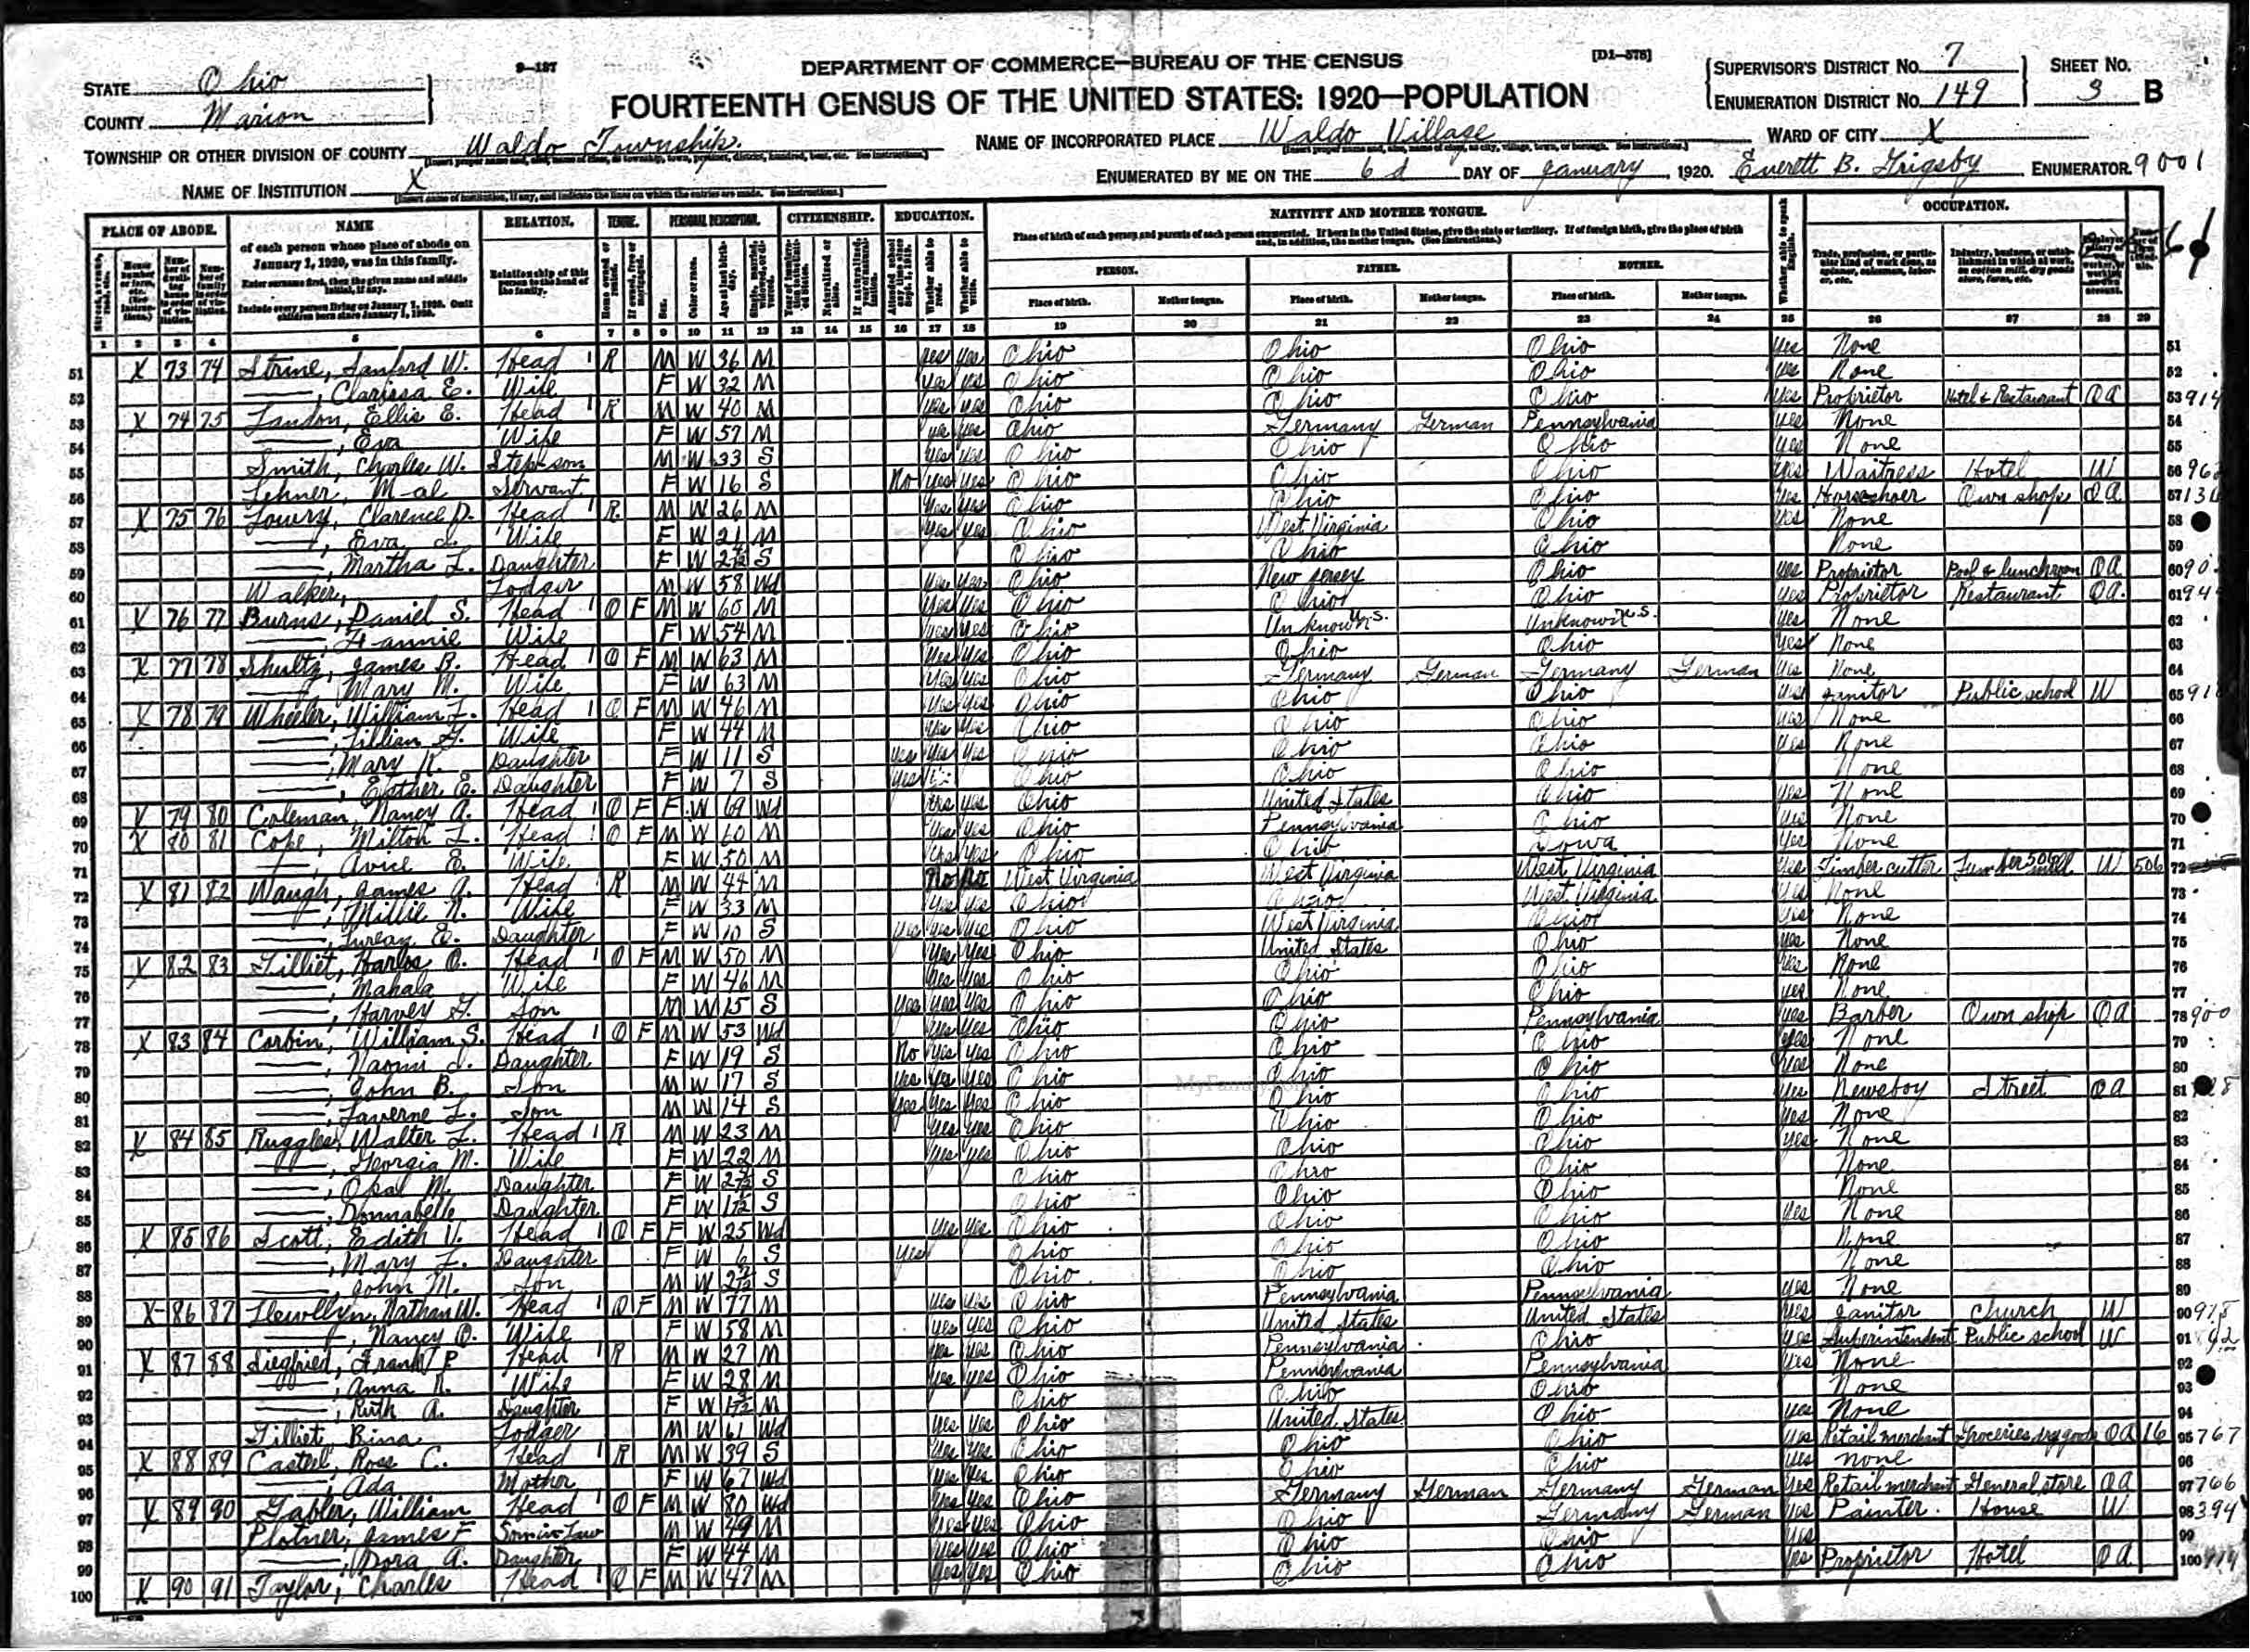 9-187
DEPARTMENT OF COMMERCE—BUREAU OF THE CENSUS
[D1-578]
FOURTEENTH CENSUS OF THE UNITED STATES: 1920—POPULATION
STATE Ohio
COUNTY Marion
SUPERVISOR'S DISTRICT No. 7
ENUMERATION DISTRICT No. 149
SHEET No. 3 B
TOWNSHIP OR OTHER DIVISION OF COUNTY Waldo Township
NAME OF INCORPORATED PLACE Waldo Village
WARD OF CITY X
NAME OF INSTITUTION X
ENUMERATED BY ME ON THE 6 d DAY OF January, 1920. Everett B. Grigsby ENUMERATOR. 9001
PLACE OF ABODE. NAME RELATION. TENURE. PERSONAL DESCRIPTION. CITIZENSHIP. EDUCATION. NATIVITY AND MOTHER TONGUE. OCCUPATION.
of each person whose place of abode on January 1, 1920, was in this family.
Enter surname first, then the given name and middle initial, if any.
Include every person living on January 1, 1920. Omit children born since January 1, 1920.
Relationship of this person to the head of the family.
Place of birth of each person and parents of each person enumerated. If born in the United States, give the state or territory. If of foreign birth, give the place of birth and, in addition, the mother tongue. (See Instructions.)
PERSON. FATHER. MOTHER.
Place of birth. Mother tongue. Place of birth. Mother tongue. Place of birth. Mother tongue.
1 2 3 4 5 6 7 8 9 10 11 12 13 14 15 16 17 18 19 20 21 22 23 24 25 26 27 28 29
51 X 73 74 Strine, Sanford W. Head 1 R M W 36 M yes yes Ohio Ohio Ohio yes None 51
52 ——, Clarissa E. Wife F W 32 M yes yes Ohio Ohio Ohio yes None 52
53 X 74 75 Landon, Ellis E. Head 1 R M W 40 M yes yes Ohio Ohio Ohio yes Proprietor Hotel & Restaurant OA 53 914
54 ——, Eva Wife F W 57 M yes yes Ohio Germany German Pennsylvania yes None 54
55 Smith, Charles W. Step-son M W 33 S yes yes Ohio Ohio Ohio yes None 55
56 Lehner, M-al Servant F W 16 S No yes yes Ohio Ohio Ohio yes Waitress Hotel W 56
57 X 75 76 Lowry, Clarence D. Head 1 R M W 26 M yes yes Ohio Ohio Ohio yes Horseshoer Own shop OA 57
58 ——, Eva Wife F W 21 M yes yes Ohio West Virginia Ohio yes None 58
59 ——, Martha L. Daughter F W S Ohio Ohio Ohio None 59
60 Walker, Lodger M W 58 Wd yes yes Ohio New Jersey Ohio yes Proprietor Pool & lunchroom OA 60
61 X 76 77 Burns, Daniel S. Head 1 O F M W 60 M yes yes Ohio Ohio Ohio yes Proprietor Restaurant OA 61
62 ——, Fannie Wife F W 54 M yes yes Ohio Unknown U.S. Unknown U.S. yes None 62
63 X 77 78 Shultz, James B. Head 1 O F M W 63 M yes yes Ohio Ohio Ohio yes None 63
64 ——, Mary M. Wife F W 63 M yes yes Ohio Germany German Germany German yes None 64
65 X 78 79 Wheeler, William F. Head 1 O F M W 46 M yes yes Ohio Ohio Ohio yes Janitor Public school W 65
66 ——, Lillian G. Wife F W 44 M yes yes Ohio Ohio Ohio yes None 66
67 ——, Mary K. Daughter F W 11 S yes yes yes Ohio Ohio Ohio yes None 67
68 ——, Esther E. Daughter F W 7 S yes Ohio Ohio Ohio None 68
69 X 79 80 Coleman, Nancy A. Head 1 O F F W 69 Wd yes yes Ohio United States Ohio yes None 69
70 X 80 81 Cope, Milton L. Head 1 O F M W 60 M yes yes Ohio Pennsylvania Ohio yes None 70
71 ——, Avice E. Wife F W 50 M yes yes Ohio Ohio Iowa yes None 71
72 X 81 82 Waugh, James A. Head R M W 44 M No No West Virginia West Virginia West Virginia yes Timber cutter Lumber mill W 506 72
73 ——, Millie N. Wife F W 33 M yes yes Ohio Ohio West Virginia yes None 73
74 ——, E. Daughter F W 10 S yes yes yes Ohio West Virginia Ohio yes None 74
75 X 82 83 Gilliet, Harlos O. Head 1 O F M W 50 M yes yes Ohio United States Ohio yes None 75
76 ——, Mahala Wife F W 46 M yes yes Ohio Ohio Ohio yes None 76
77 ——, Harvey G. Son M W 15 S yes yes yes Ohio Ohio Ohio yes None 77
78 X 83 84 Corbin, William S. Head 1 O F M W 53 Wd yes yes Ohio Ohio Pennsylvania yes Barber Own shop OA 78 900
79 ——, Naomi J. Daughter F W 19 S No yes yes Ohio Ohio Ohio yes None 79
80 ——, John B. Son M W 17 S yes yes yes Ohio Ohio Ohio yes None 80
81 ——, Laverne L. Son M W 14 S yes yes yes Ohio Ohio Ohio yes Newsboy Street OA 81
82 X 84 85 Ruggles, Walter L. Head 1 R M W 23 M yes yes Ohio Ohio Ohio yes None 82
83 ——, Georgia M. Wife F W 22 M yes yes Ohio Ohio Ohio yes None 83
84 ——, Opal M. Daughter F W S Ohio Ohio Ohio None 84
85 ——, Donnabelle Daughter F W S Ohio Ohio Ohio None 85
86 X 85 86 Scott, Edith V. Head 1 O F F W 25 Wd yes yes Ohio Ohio Ohio yes None 86
87 ——, Mary L. Daughter F W 6 S yes Ohio Ohio Ohio None 87
88 ——, John M. Son M W S Ohio Ohio Ohio None 88
89 X 86 87 Llewellyn, Nathan W. Head 1 O F M W 77 M yes yes Ohio Pennsylvania Pennsylvania yes None 89
90 ——, Nancy O. Wife F W 58 M yes yes Ohio United States United States yes Janitor Church W 90
91 X 87 88 Siegfried, Frank P. Head 1 R M W 27 M yes yes Ohio Pennsylvania Ohio yes Superintendent Public school W 91
92 ——, Anna R. Wife F W 28 M yes yes Ohio Pennsylvania Pennsylvania yes None 92
93 ——, Ruth A. Daughter F W M Ohio Ohio Ohio None 93
94 Gilliet, Bina Lodger M W 61 Wd yes yes Ohio United States Ohio yes None 94
95 X 88 89 Casteel, Ross C. Head 1 R M W 39 S yes yes Ohio Ohio Ohio yes Retail merchant Groceries dry goods OA 16 95 767
96 ——, Ada Mother F W 67 Wd yes yes Ohio Ohio Ohio yes none 96
97 X 89 90 Gabler, William Head 1 O F M W 80 Wd yes yes Ohio Germany German Germany German yes Retail merchant General store OA 97 766
98 Plotner, James F. Son in Law M W 49 M yes yes Ohio Ohio Germany German yes Painter House W 98 394
99 ——, Dora A. Daughter F W 44 M yes yes Ohio Ohio Ohio yes 99
100 X 90 91 Taylor, Charles Head 1 O F M W 47 M yes yes Ohio Ohio Ohio yes Proprietor Hotel OA 100